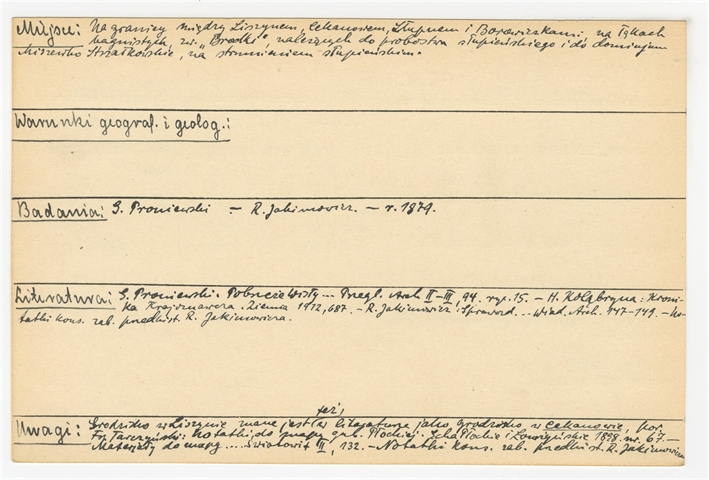 Miejsc: Na granicy między Liszynem, Cekanowem, Słupnem i Borowiczkami, na łąkach
bagnistych, zw. „Bradki" należących do probostwa słupieńskiego i do dominjum
Miszewko Strzałkowskie, na strumieniem słupieńskim.
Warunki geograf. i geolog.:
Badania: G. Proniewski — R. Jakimowicz. — r. 1879.
Literatura: G. Proniewski: Pobrzeże Wisły... Przegl. Arch II–III, 94. ryc. 15. — H. Kołąbryna: Kroni-
ka Krajoznawcza. Ziemia 1912, 687. — R. Jakimowicz: Sprawozd... Wiad. Arch. 147–149. — No-
tatki kons. zab. przedhist. R. Jakimowicza.
też,
Uwagi: Grodzisko w Liszynie znane jest w literaturze jako grodzisko w Cekanowie, por.
Fr. Tarczyński: Notatki do mapy gub. Płockiej. Echa Płockie i Łomżyńskie 1898. nr. 67. —
Materjały do mapy .... Światowit III, 132. — Notatki kons. zab. przedhist. R. Jakimowicza